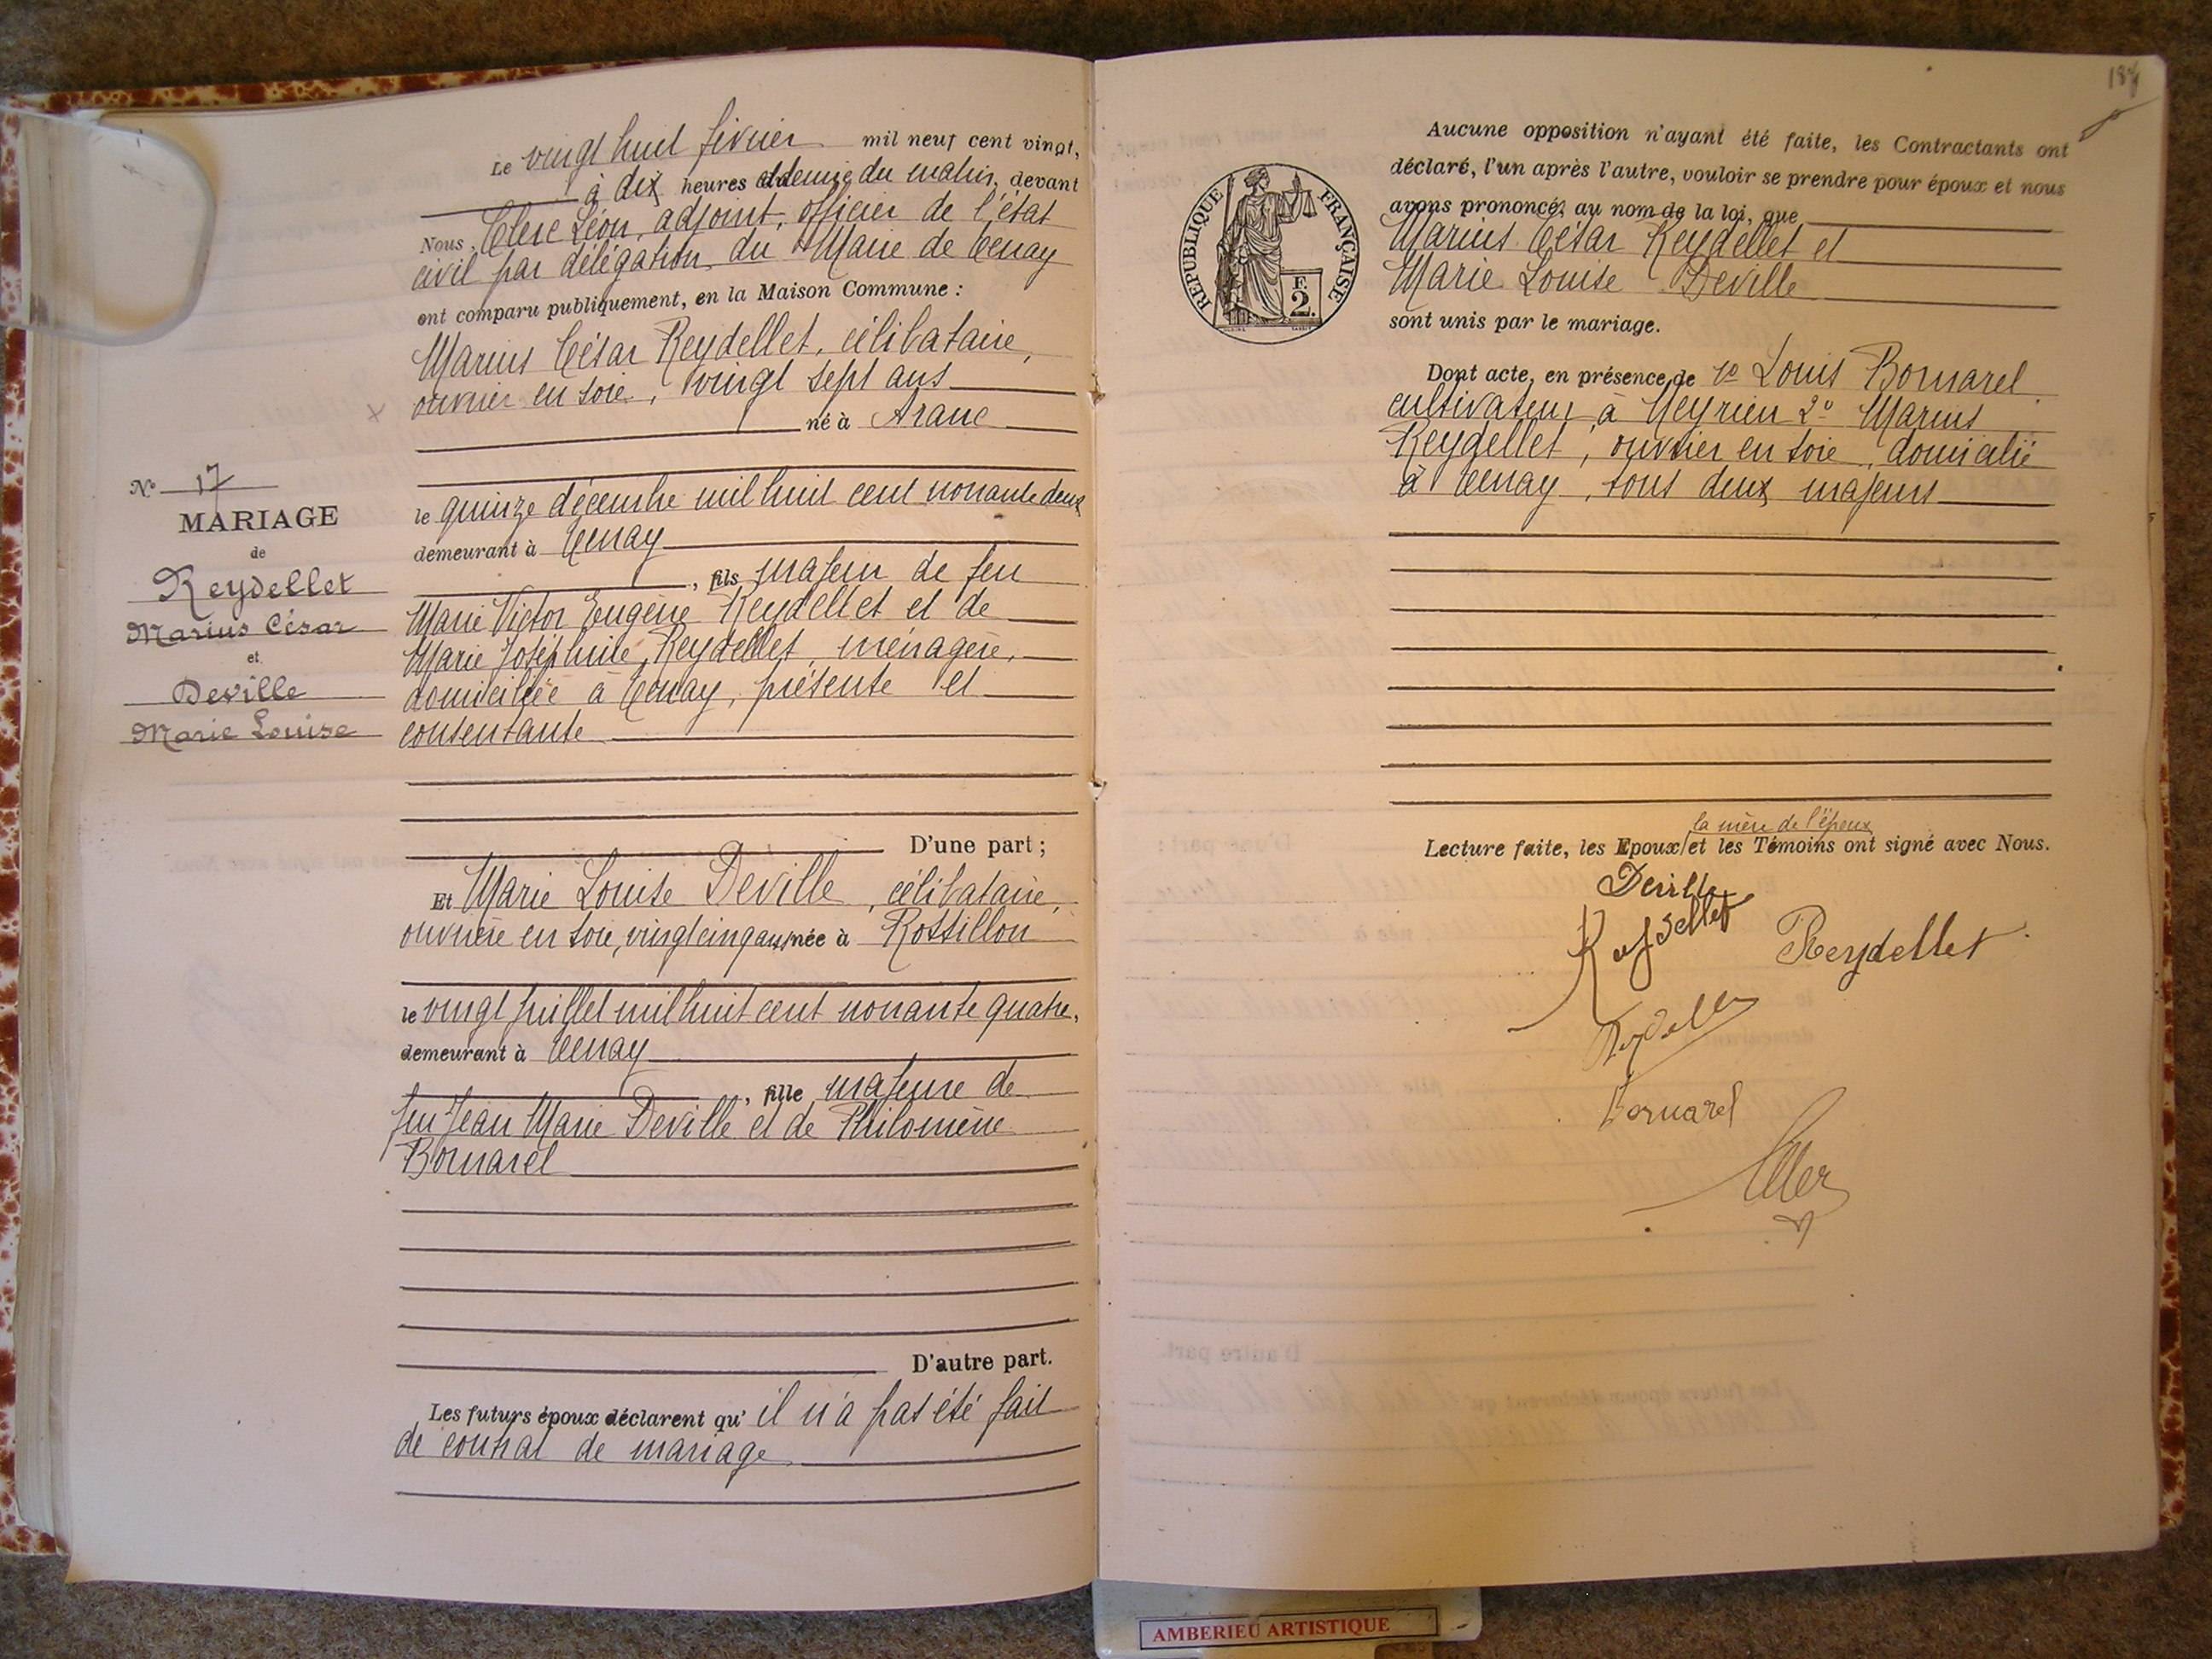 Le vingt huit février mil neuf cent vingt,
à dix heures et demie du matin, devant
Nous, Clerc Léon, adjoint, officier de l'état
civil par délégation du Maire de Tenay
ont comparu publiquement, en la Maison Commune :
Marius César Reydellet, célibataire,
ouvrier en soie, vingt sept ans
né à Aranc
le quinze décembre mil huit cent nonante deux
demeurant à Tenay
, fils majeur de feu
Marie Victor Eugène Reydellet et de
Marie Joséphine Reydellet, ménagère,
domiciliée à Tenay, présente et
consentante
D'une part ;
Et Marie Louise Deville, célibataire,
ouvrière en soie, vingt cinq ans, née à Rossillon
le vingt juillet mil huit cent nonante quatre,
demeurant à Tenay
, fille majeure de
feu Jean Marie Deville et de Philomène
Bornarel
D'autre part.
Les futurs époux déclarent qu' il n'a pas été fait
de contrat de mariage
N° 17
MARIAGE
de
Reydellet
Marius César
et
Deville
Marie Louise
Aucune opposition n'ayant été faite, les Contractants ont
déclaré, l'un après l'autre, vouloir se prendre pour époux et nous
avons prononcé, au nom de la loi, que
Marius César Reydellet et
Marie Louise Deville
sont unis par le mariage.
RÉPUBLIQUE FRANÇAISE
2 F.
Dont acte, en présence de 1° Louis Bornarel
cultivateur à Meyrieu 2° Marius
Reydellet, ouvrier en soie, domicilié
à Tenay, tous deux majeurs
la mère de l'époux
Lecture faite, les Epoux/et les Témoins ont signé avec Nous.
Deville
Reydellet
Reydellet
Reydellet
Bornarel
AMBERIEU ARTISTIQUE